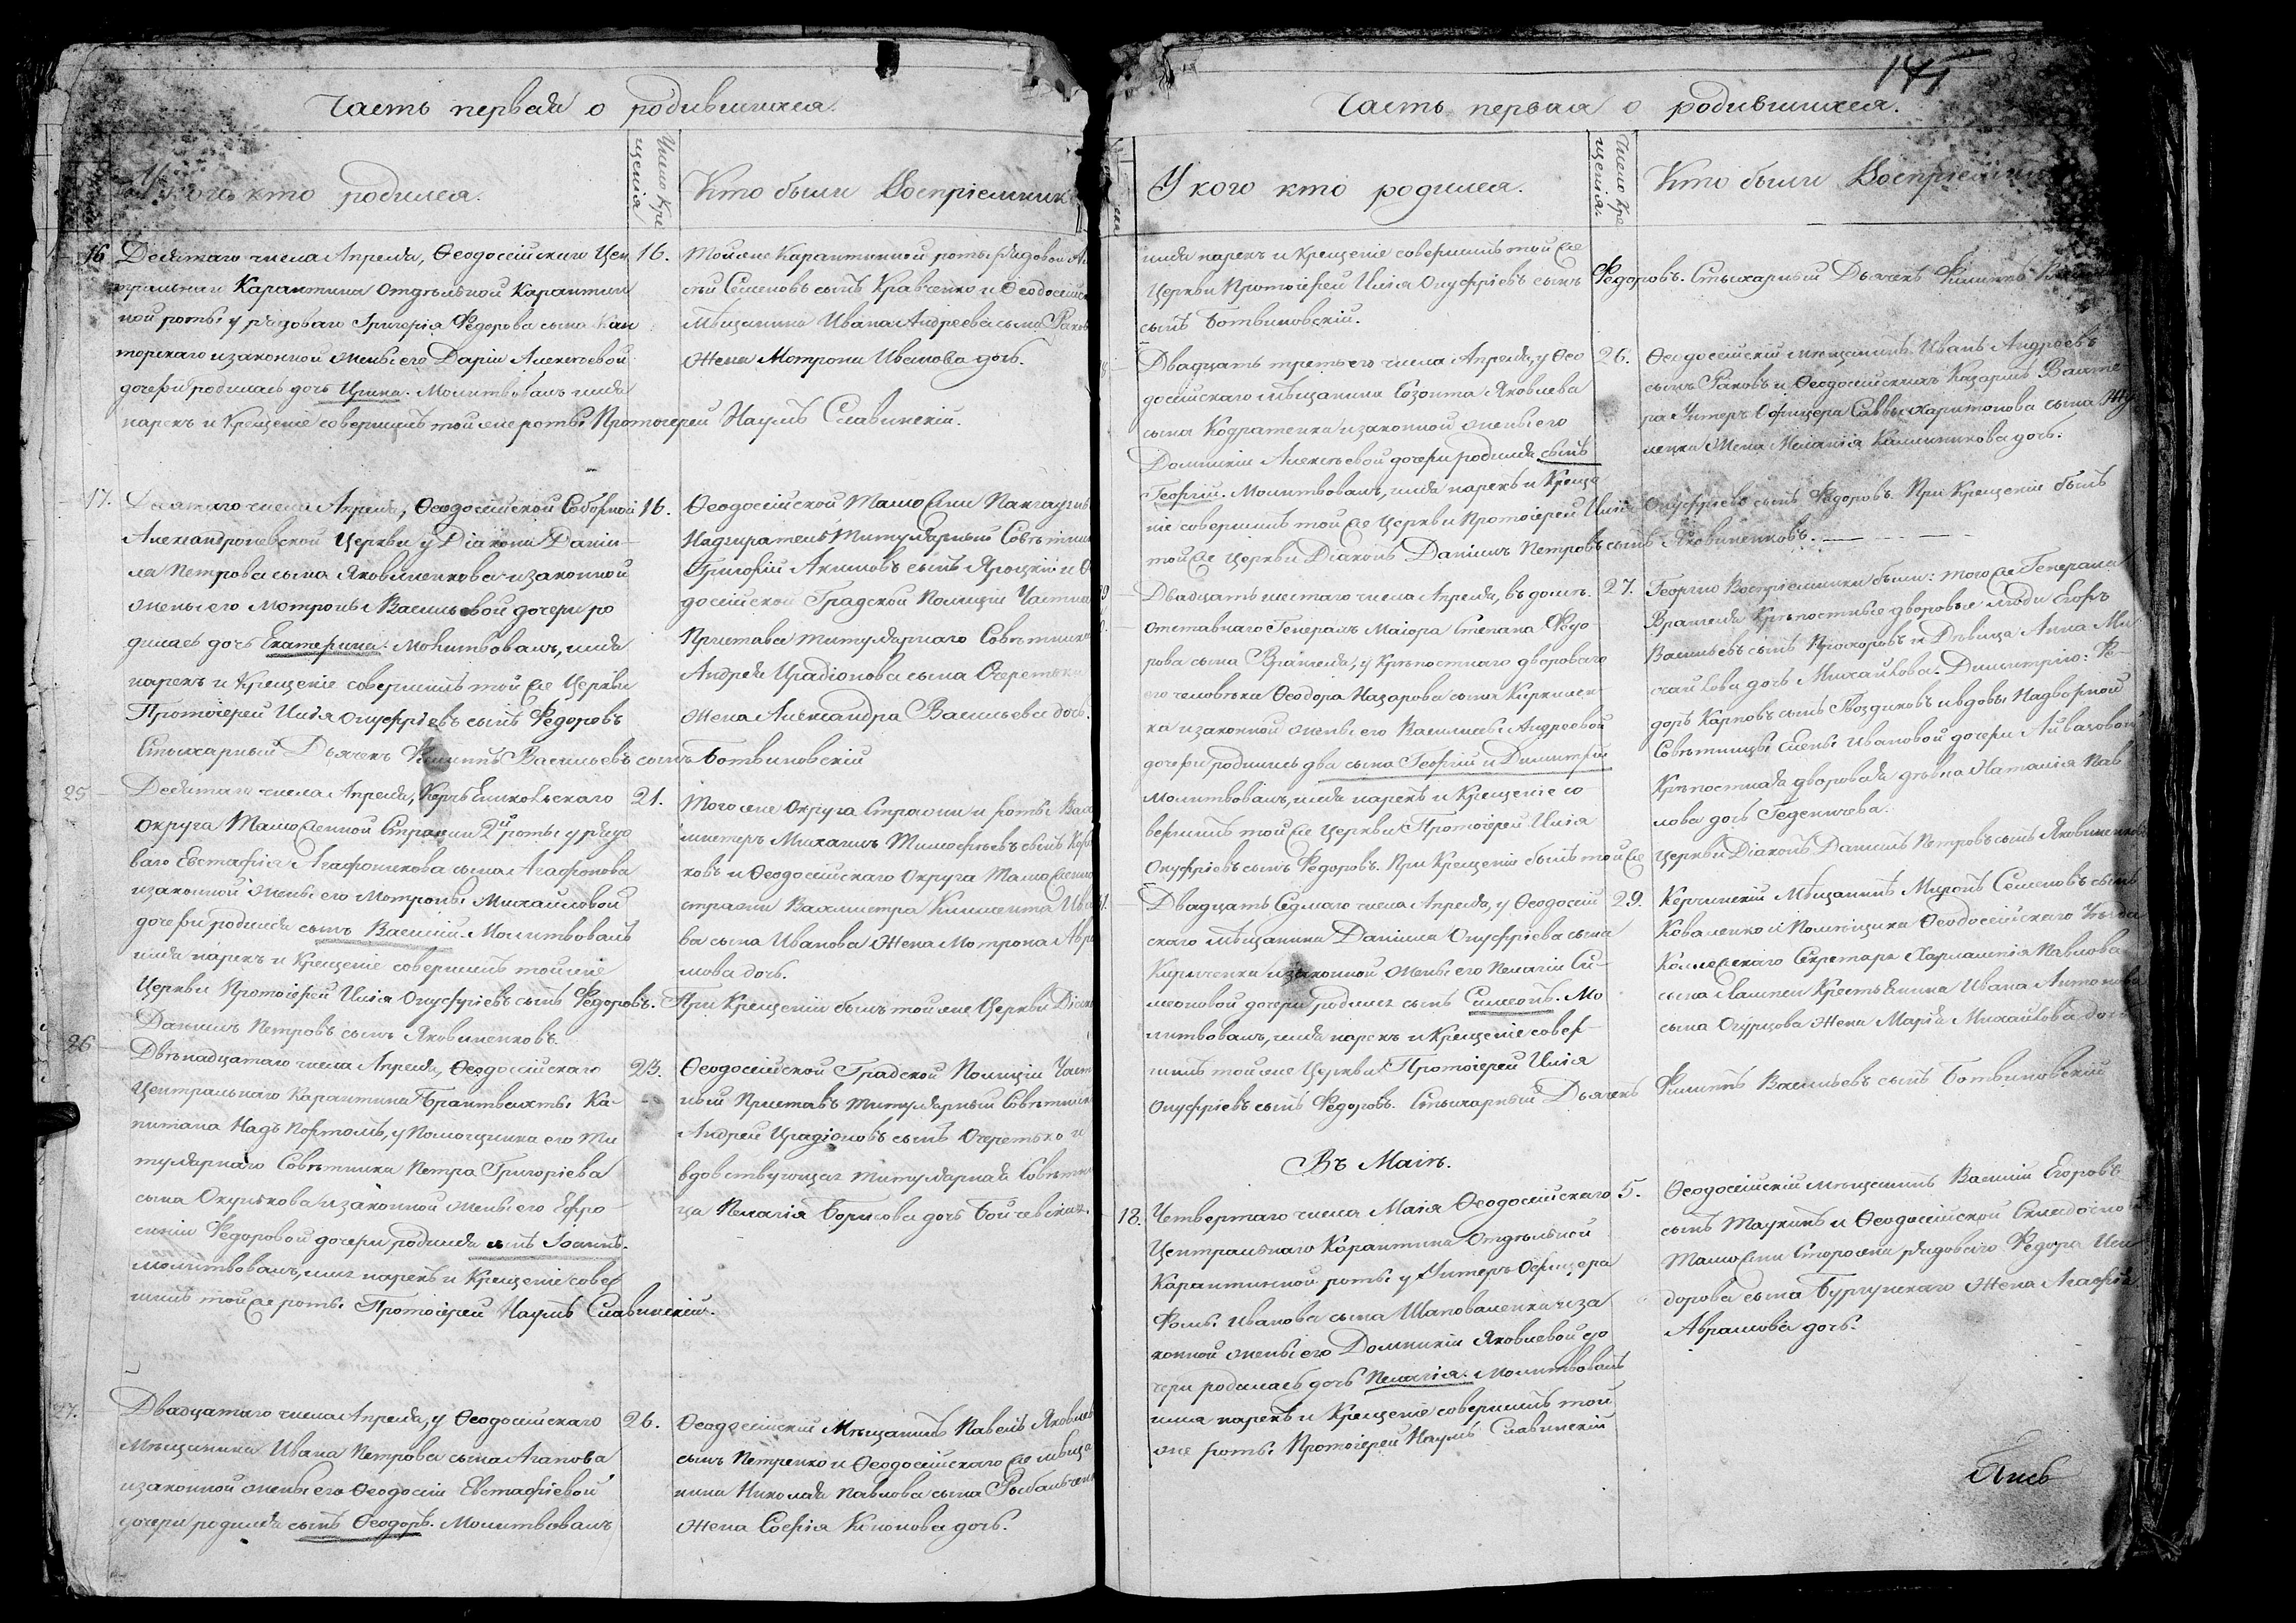 Часть первая о родившихся.
У кого кто родился.
Число кре
щенія
Кто были Воспріемник
16 Десятаго числа Апреля, Ѳеодосійскаго Цен
тральнаи Карантина отдѣльной Карантин
ной роты у рядоваго Григорія Федорова сына Кан
торскаго и законной жены его Даріи Алексѣевой
дочери родилась дочь Ирина. Молитвовалъ имя
нарекъ и Крещеніе совершилъ той же роты Протоіерей Наумъ Славинскій.
16.
Той же Карантинной роты Рядовой
сѣй Семеновъ сынъ Кравченко и Ѳеодосійск
Мѣщанина Ивана Андреева сына Раков
жена Мотрона Иванова дочь.
17. Десятаго числа Апреля, Ѳеодосійской Соборной
Александроневской Церкви у Діакона Дании-
ла Петрова сына Яковиненкова и законной
жены его Мотроны Васильевой дочери ро
дилась дочь Екатерина. Молитвовалъ, имя
нарекъ и Крещеніе совершилъ той же Церкви
Протоіерей Илія Онуфріевъ сынъ Федоровъ
Стихарный Дьячекъ Филиппъ Васильевъ сынъ Ботвиновскій
16.
Ѳеодосійской Таможни Пакгаузн
Надзиратель Титулярный Совѣтник
Григорій Акимовъ сынъ Яроцкій и Ѳ
досійской Градской Полиціи Частна
Пристава титулярнаго Совѣтника
Андрея Ирадіонова сына Очеретька
жена Александра Васильева дочь.
25 Десятаго числа Апреля, Керчь Еникольскаго
округа Таможенной Стражи 2й роты у рядо
ваго Евстафія Агафоникова сына Агафонова
и законной жены его Мотроны Михайловой
дочери родился сынъ Василій. Молитвовалъ
имя нарекъ и Крещеніе совершилъ той же
Церкви Протоіерей Илія Онуфріевъ сынъ Федоровъ. При Крещеніи былъ той же Церкви Діако
Даниилъ Петровъ сынъ Яковиненковъ
21.
Того же Округа Стражи и роты Вах
мистеръ Михаилъ Тимофѣевъ сынъ
ковъ и Ѳеодосійскаго Округа Таможенно
стражи Вахмистра Климента Ива
ва сына Иванова жена Мотрона Авра
мова дочь.
26 Двѣнадцатаго числа Апреля, Ѳеодосійскаго
Центральнаго Карантина Брантвахты Ка-
питана Надъ Портомъ, у Помощника его Ти
тулярнаго Совѣтника Петра Григоріева
сына Окунькова и законной жены его Ефро-
синіи Федоровой дочери родился сынъ Іоаннъ.
Молитвовалъ, имя нарекъ и Крещеніе совер
шилъ той же роты Протоіерей Наумъ Славинскій.
23.
Ѳеодосійской Градской Полиціи Част
ный Приставъ титулярный Совѣтник
Андрей Ирадіоновъ сынъ Очеретько и
вдовствующая титулярная Совѣтни
ца Пелагія Борисова дочь Бойчевская.
27. Двадцатаго числа Апреля, у Ѳеодосійскаго
Мѣщанина Ивана Петрова сына Агапова
и законной жены его Ѳеодосіи Евстафіевой
дочери родился сынъ Ѳеодоръ. Молитвовалъ
26.
Ѳеодосійскій Мѣщанинъ Павелъ Яковлев
сынъ Петренко и Ѳеодосійскаго же мѣща
нина Николая Павлова сына Рыбальчен
жена Софія Кононова дочь.
Часть первая о родившихся.
У кого кто родился.
Число кре
щенія.
Кто были Воспріемник
имя нарекъ и Крещеніе совершилъ той же
Церкви Протоіерей Илія Онуфріевъ сынъ Федоровъ. Стихарный Дьячекъ Филиппъ
сынъ Ботвиновскій.
Двадцать третьего числа Апреля, у Ѳео
досійскаго мѣщанина Созонта Яковлева
сына Кодратенка и законной жены его
Домникіи Алексѣевой дочери родился сынъ
Георгій. Молитвовалъ, имя нарекъ и Креще
ніе совершилъ той же Церкви Протоіерей Илія Онуфріевъ сынъ Федоровъ. При Крещеніи былъ
той же Церкви Діаконъ Даниилъ Петровъ сынъ Яковиненковъ.
26.
Ѳеодосійскій мѣщанинъ Иванъ Андреевъ
сынъ Раковъ и Ѳеодосійскихъ Казармъ Вахте
ра Унтеръ Офицера Саввы Харитонова сына
ленка жена Меланія Каллиникова дочь.
Двадцать шестаго числа Апреля, въ домѣ
отставнаго Генералъ Маіора Степана Федо-
рова сына Врангеля, у Крѣпостнаго двороваго
его человѣка Ѳеодора Назарова сына
ка и законной жены его Василисы Андреевой
дочери родились два сына Георгій и Димитрій
Молитвовалъ, имя нарекъ и Крещеніе со
вершилъ той же Церкви Протоіерей Илія
Онуфріевъ сынъ Федоровъ. При Крещеніи былъ той же Церкви Діаконъ Даниилъ Петровъ сынъ Яковиненков
27.
Георгію Воспріемники были: того же Генерала
Врангеля Крѣпостные дворовые люди Егоръ
Васильевъ сынъ Прохоровъ и Дѣвица Анна Ми-
хайлова дочь Михайлова. Димитрію: Фе-
доръ Карповъ сынъ Гвоздиковъ и вдовы Надворной
Совѣтницы Елены Ивановой дочери Айвазовой
Крѣпостная дворовая дѣвка Наталія Пав
лова дочь Геденичова.
Двадцать Седмаго числа Апреля, у Ѳеодосій
скаго мѣщанина Даниила Онуфріева сына
Кириченка и законной жены его Пелагіи Си-
меоновой дочери родился сынъ Симеонъ. Мо
литвовалъ, имя нарекъ и Крещеніе совер-
шилъ той же Церкви Протоіерей Илія
Онуфріевъ сынъ Федоровъ. Стихарный Дьячекъ Филиппъ Васильевъ сынъ Ботвиновскій
29.
Керчинскій Мѣщанинъ Миронъ Семеновъ сынъ
Коваленко и Помѣщика Ѳеодосійскаго Уѣзда
Коллежскаго Секретаря Харлампія Павлова
сына Лампси Крестьянина Ивана Антонова
сына Огурцова жена Марія Михайлова дочь
Въ Маіѣ.
18. Четвертаго числа Маія Ѳеодосійскаго
Центральнаго Карантина Отдѣльной
Карантинной роты у Унтеръ Офицера
Фомы Иванова сына Шаповаленка и за
конной жены его Домникіи Яковлевой до
чери родилась дочь Пелагія. Молитвовалъ
имя нарекъ и Крещеніе совершилъ той
же роты Протоіерей Наумъ Славинскій
5.
Ѳеодосійскій мѣщанинъ Василій Егоровъ
сынъ Таукинъ и Ѳеодосійской Складочной
Таможни Сторожа рядоваго Федора Иси
дорова сына Бургунскаго жена Агафія
Аврамова дочь.